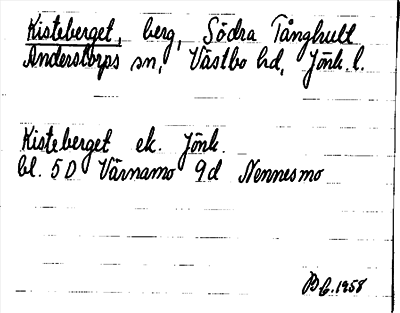 Kisteberget, berg, Södra Tånghult
Anderstorps sn, Västbo hd, Jönk. l.
Kisteberget ek. Jönk.
bl. 5D Värnamo 9d Nennesmo
1958